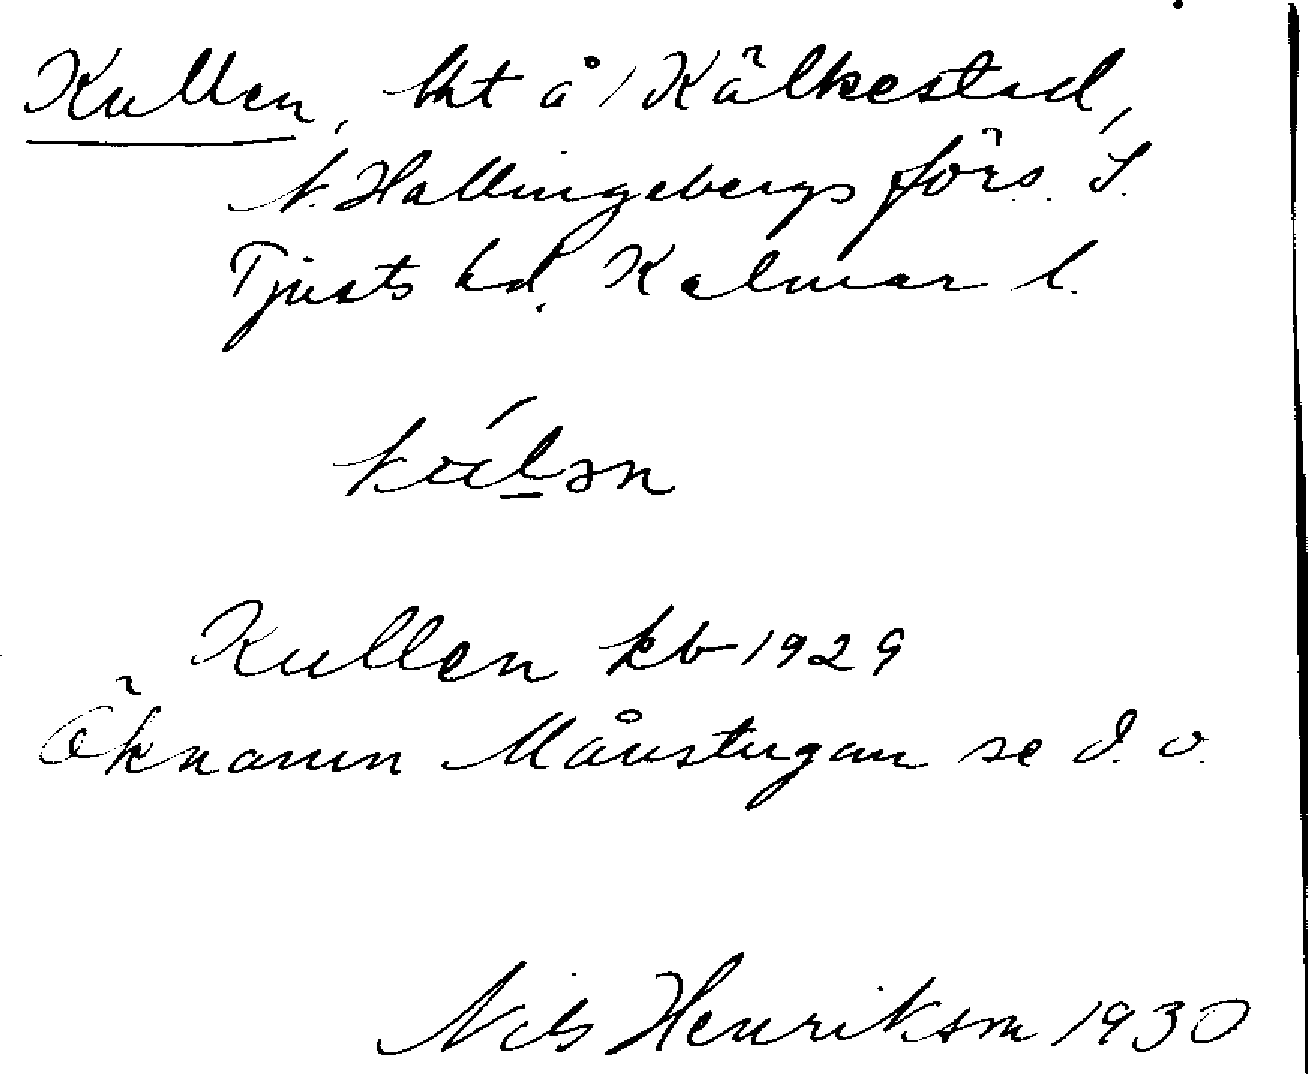 Kullen, lht å 1 Kälkestad,
N. Hallingebergs förs. S.
Tjusts hd. Kalmar l.
Kullen kb 1929
Öknamn Månstugan se d. o.
Nils Henrikson 1930